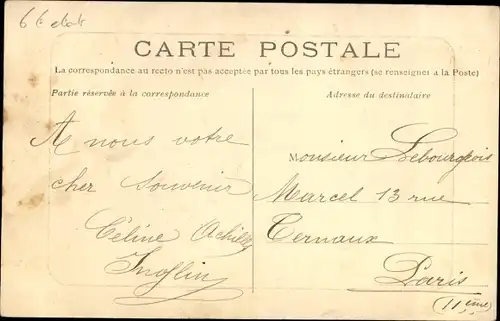 CARTE POSTALE
La correspondance au recto n'est pas acceptée par tous les pays étrangers (se renseigner à la Poste)
Partie réservée à la correspondance
Adresse du destinataire
A nous votre
cher souvenir
Céline Achille
Monsieur Lebourgeois
Marcel 13 rue
Ternaux
Paris
(11ème)